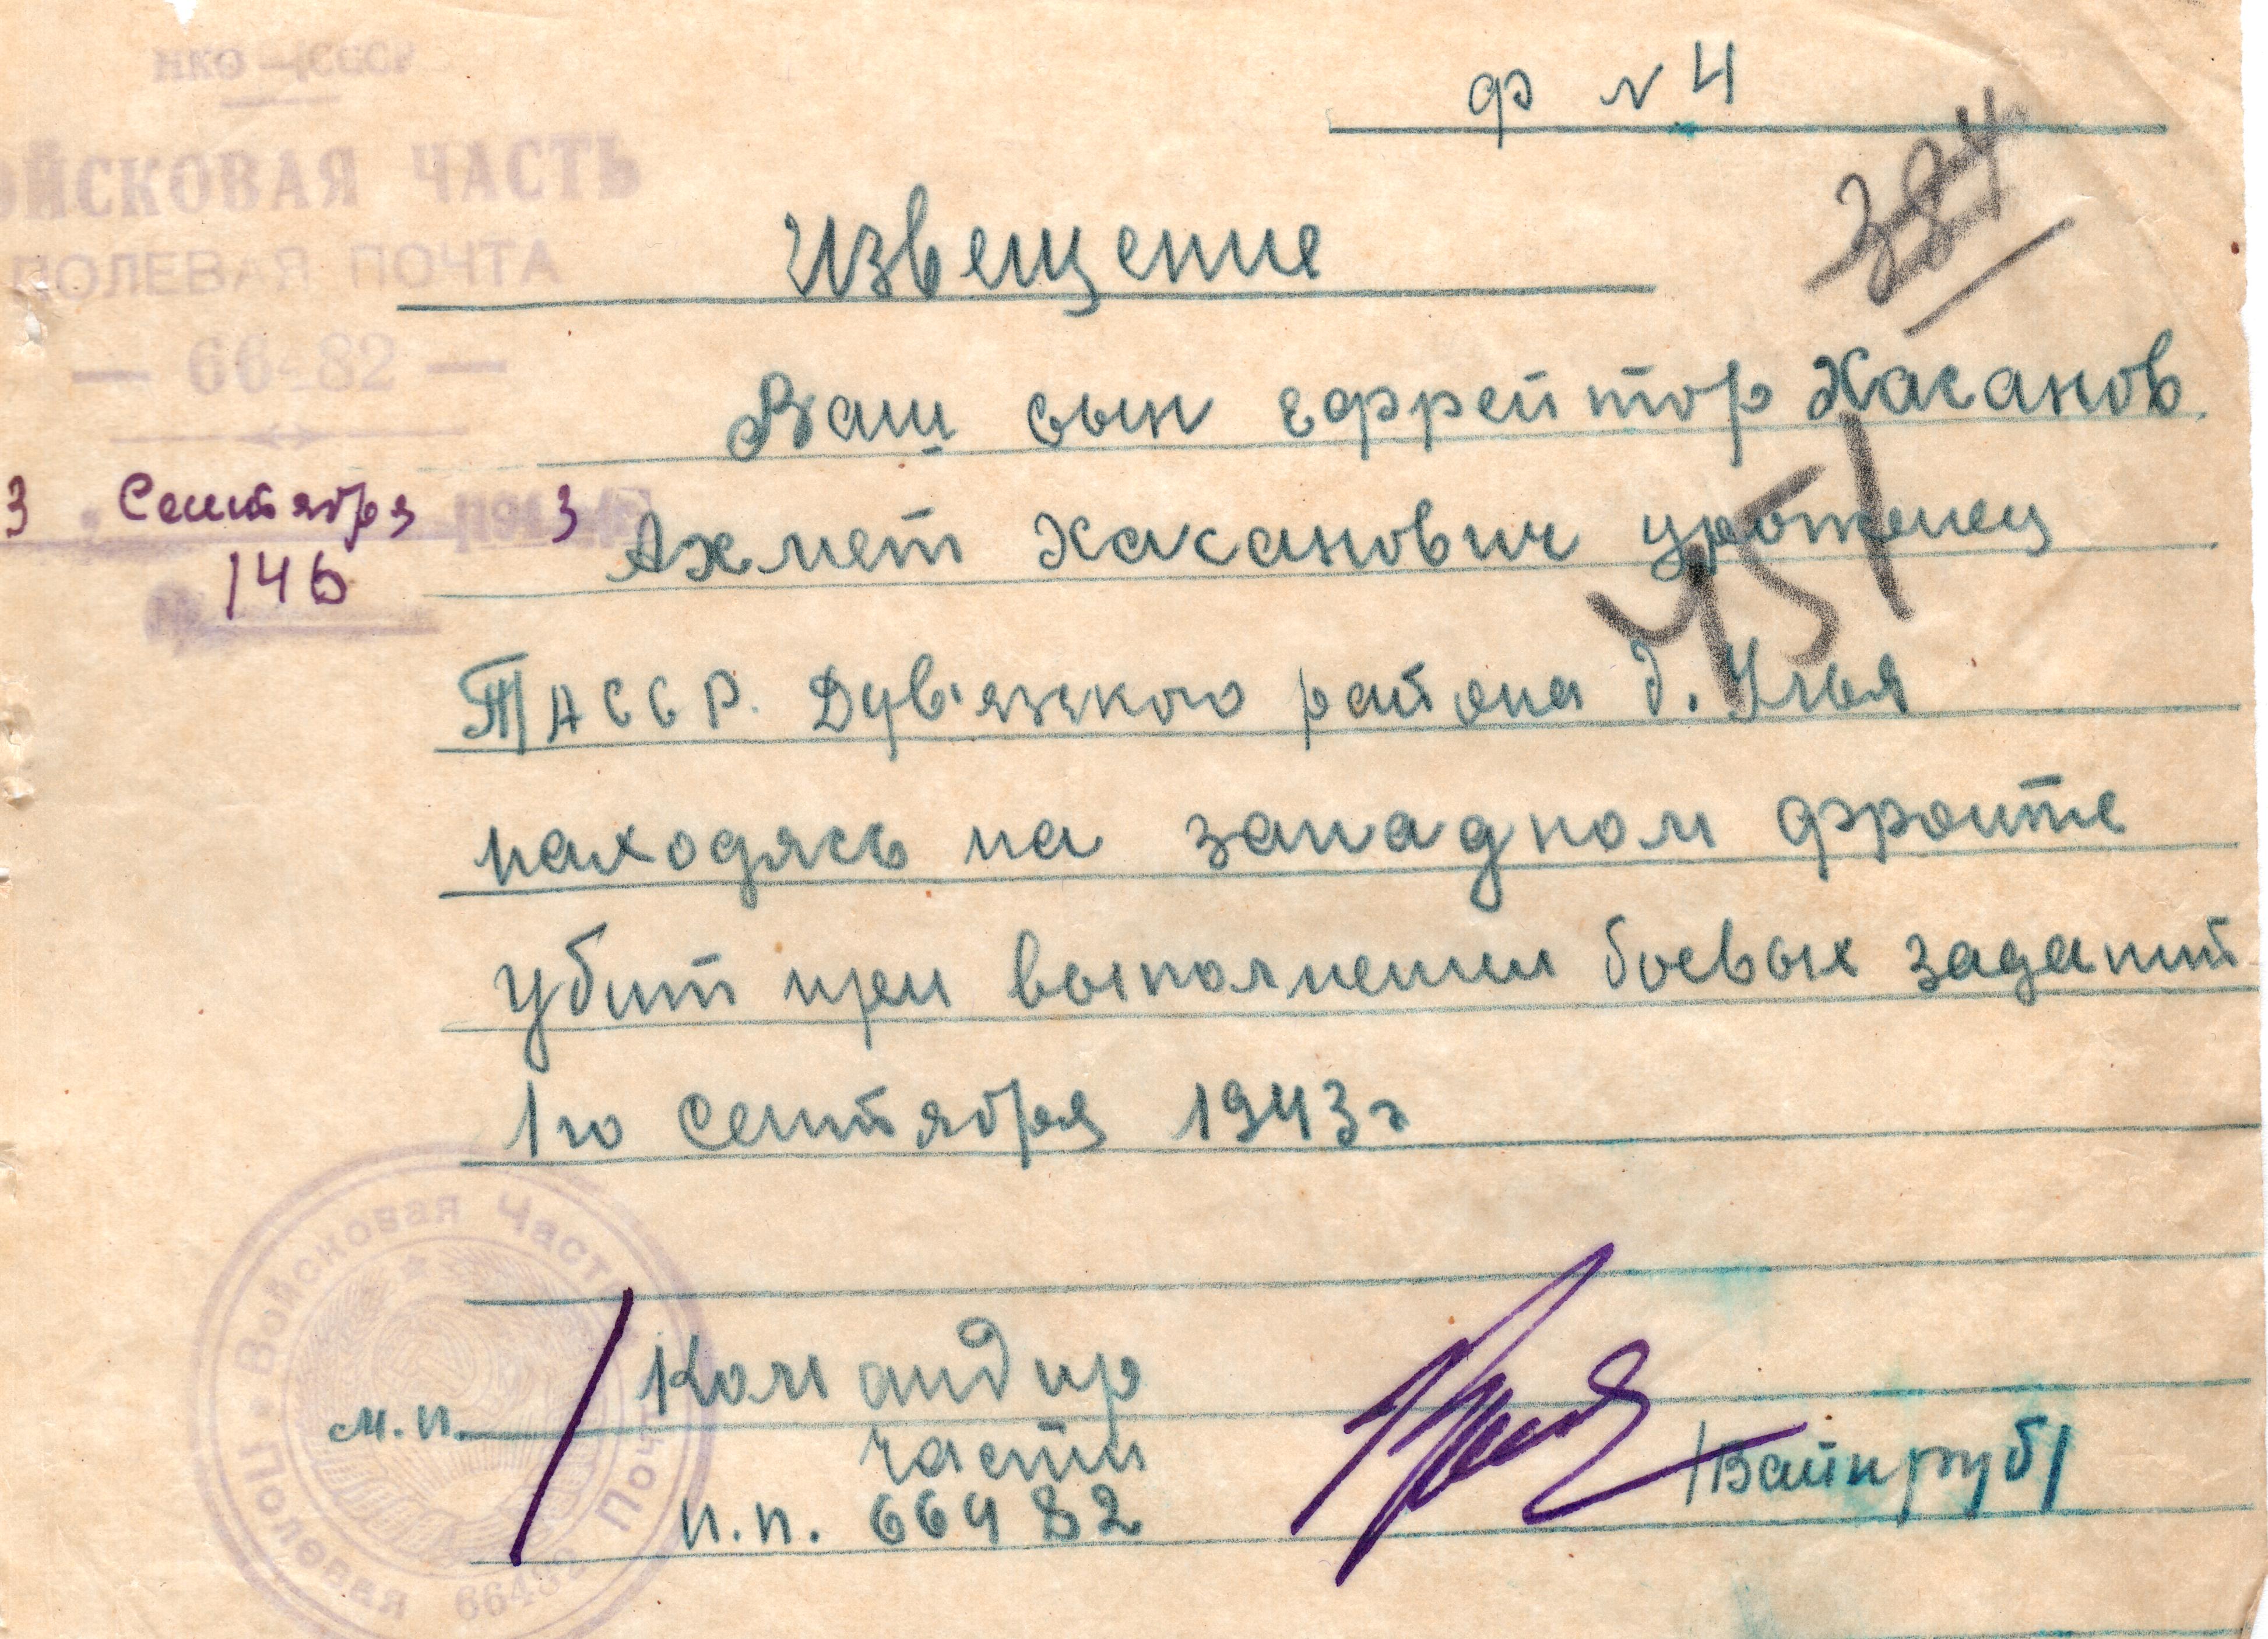 НКО СССР
ОЙСКОВАЯ ЧАСТЬ
ПОЛЕВАЯ ПОЧТА
— 66 82 —
3 Сентября 3
146
ф N 4
384
Извещение
Ваш сын ефрейтор Хасанов
Ахмет Хасанович уроженец
451
ТАССР. Дубъязского района д.
находясь на западном фронте
убит при выполнении боевых заданий
1го Сентября 1943г
м.п. Командир
части
п.п. 66482
/Вайнруб/
Войсковая Часть
Полевая Почта 66482